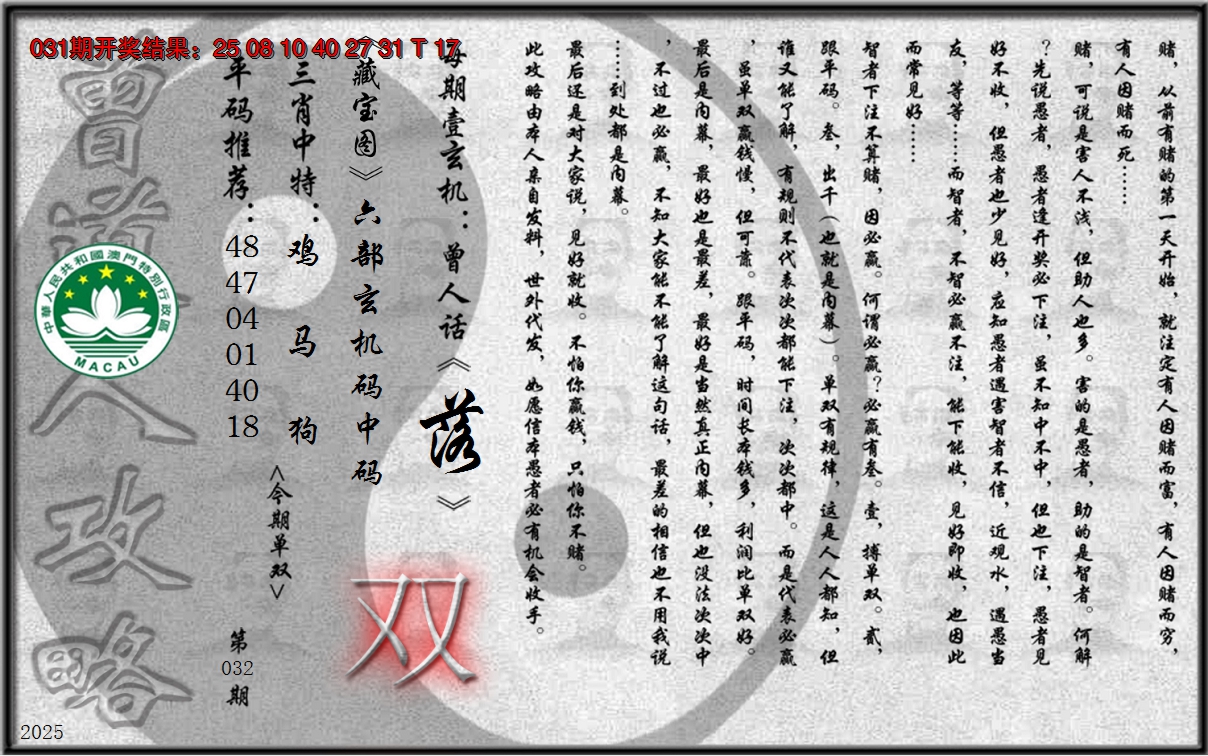 031期开奖结果：25 08 10 40 27 31 T 17
赌，从前有赌的第一天开始，就注定有人因赌而富，有人因赌而穷，
有人因赌而死……
赌，可说是害人不浅，但助人也多。害的是愚者，助的是智者。何解
？先说愚者，愚者逢开奖必下注，虽不知中不中，但也下注，愚者见
好不收，但愚者也少见好，应知愚者遇害智者不信，近观水，遇愚当
友，等等……而智者，不智必赢不注，能下能收，见好即收，也因此
而常见好……
智者下注不算赌，因必赢。何谓必赢？必赢有叁。壹，搏单双。贰，
跟平码。叁，出千（也就是内幕）。单双有规律，这是人人都知，但
谁又能了解，有规则不代表次次都能下注，次次都中。而是代表必赢
，虽单双赢钱慢，但可靠。跟平码，时间长本钱多，利润比单双好。
最后是内幕，最好也是最差，最好是当然真正内幕，但也没法次次中
，不过也必赢，不知大家能不能了解这句话，最差的相信也不用我说
……到处都是内幕。
最后还是对大家说，见好就收。不怕你赢钱，只怕你不赌。
此攻略由本人亲自发料，世外代发，如愿信本愚者必有机会收手。
每期壹玄机：曾人话《落》
《藏宝图》六部玄机码中码
双
三肖中特：鸡 马 狗
<今期单双>
平码推荐：48 47 04 01 40 18
第032期
曾道人攻略
中華人民共和國澳門特別行政區
MACAU
2025